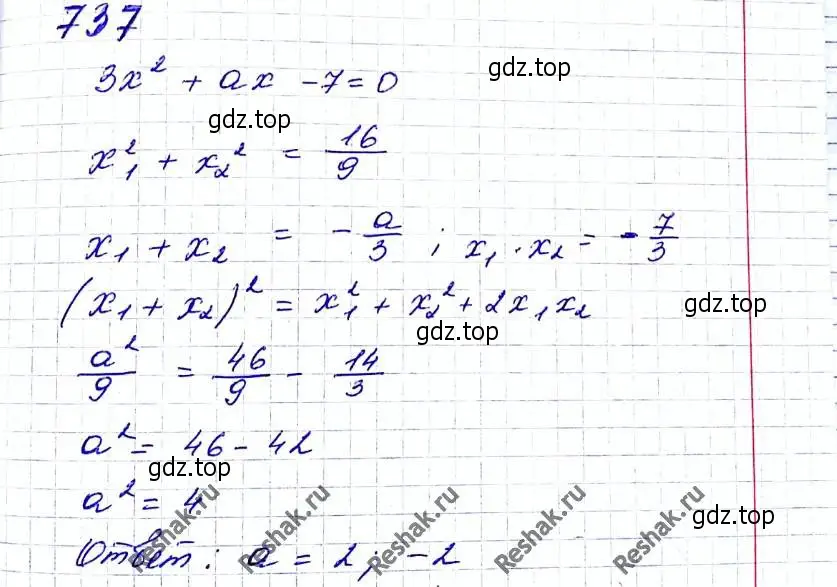 737
3x² + ax - 7 = 0
gdz.top
gdz.top
x₁² + x₂² = 16/9
x₁ + x₂ = - a/3 ; x₁ · x₂ = - 7/3
(x₁ + x₂)² = x₁² + x₂² + 2x₁x₂
gdz.top
gdz.top
a²/9 = 46/9 - 14/3
a² = 46 - 42
gdz.top
a² = 4
gdz.top
Ответ: a = 2; -2
Reshak.ru
Reshak.ru
Reshak.ru
Reshak.ru
Reshak.ru